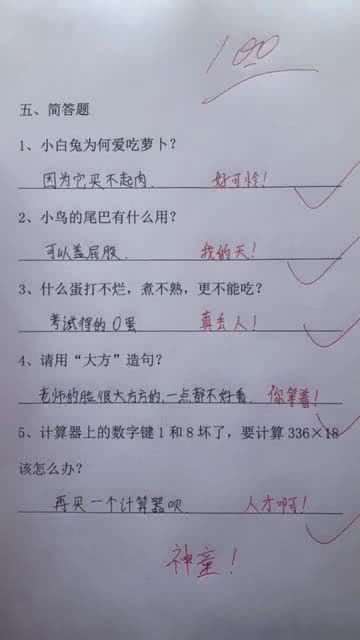 100
五、简答题
1、小白兔为何爱吃萝卜？
因为它买不起肉. 好可怜！
2、小鸟的尾巴有什么用？
可以盖屁股. 我的天！
3、什么蛋打不烂，煮不熟，更不能吃？
考试得的0蛋 真丢人！
4、请用“大方”造句？
老师的脸很大方方的,一点都不好看. 你等着！
5、计算器上的数字键1和8坏了，要计算336×18
该怎么办？
再买一个计算器呗 人才啊！
神童！